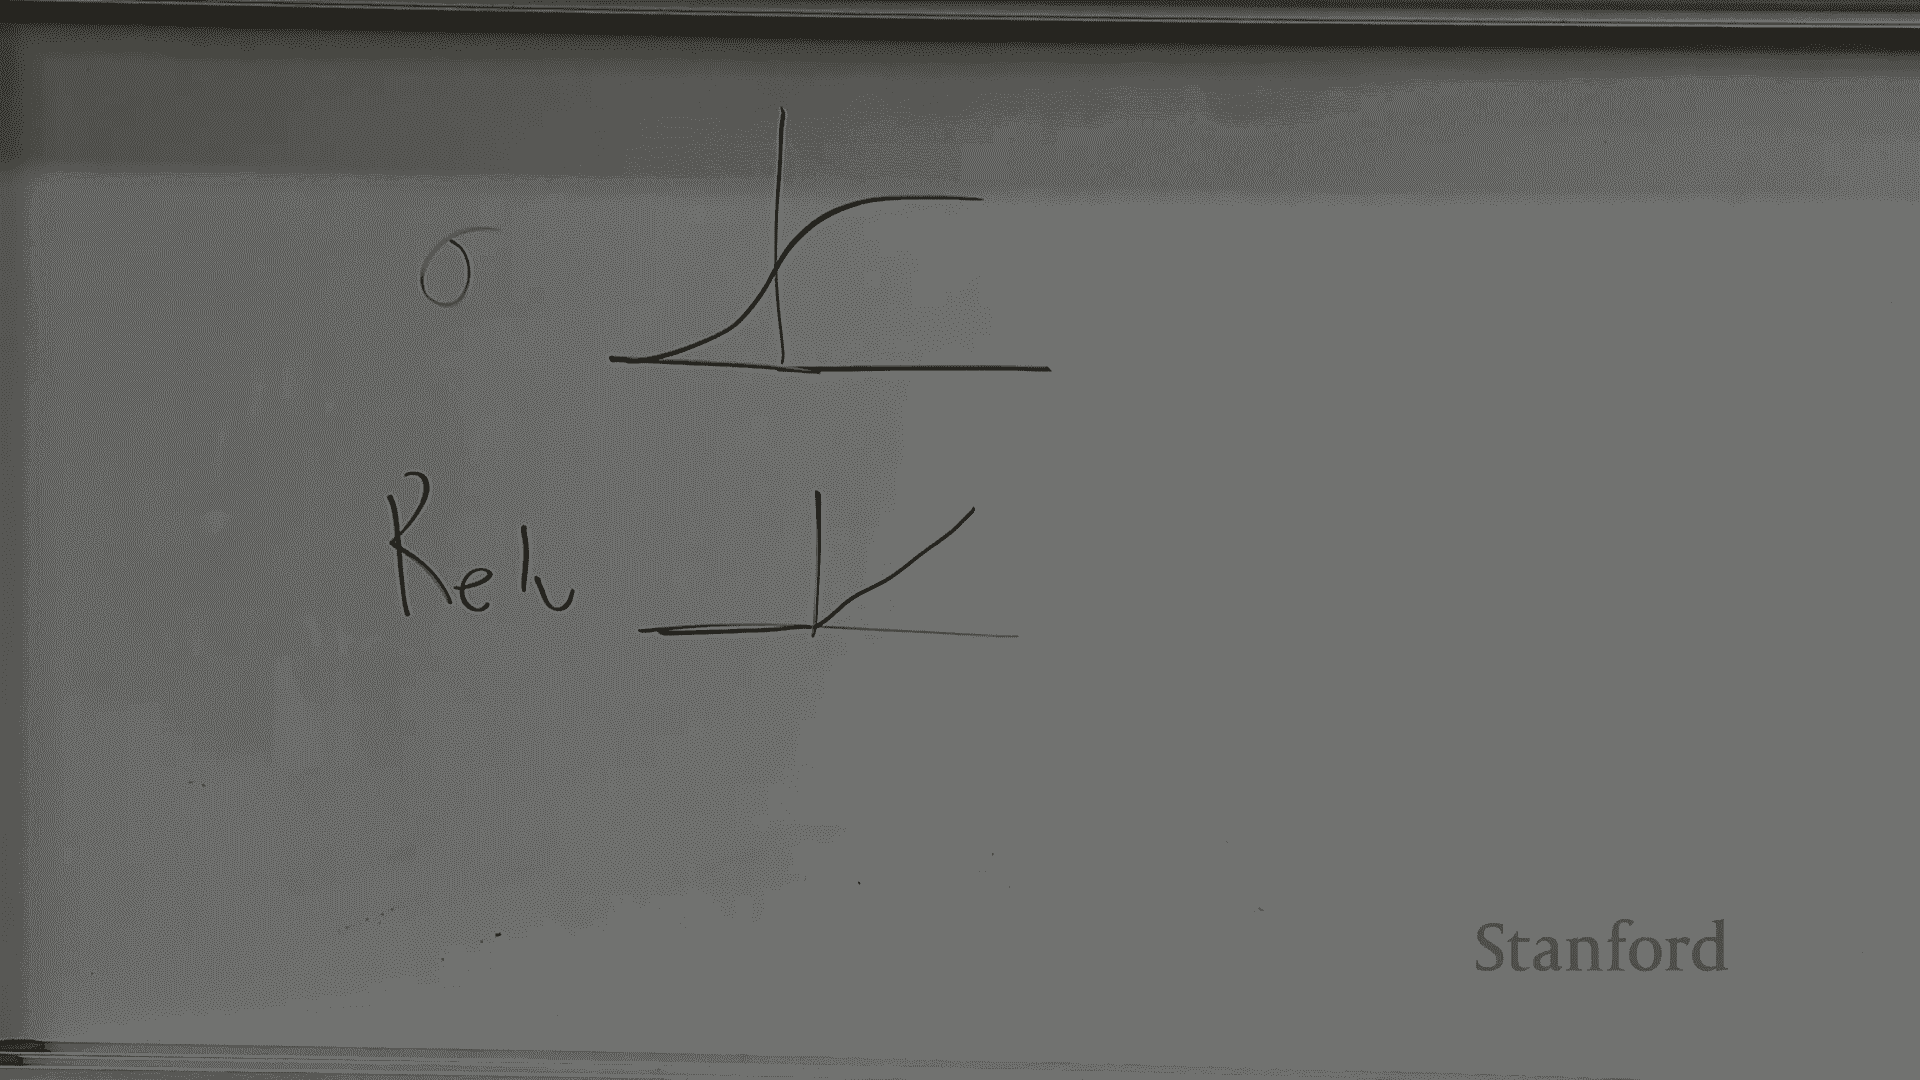 σ
Relu
Stanford